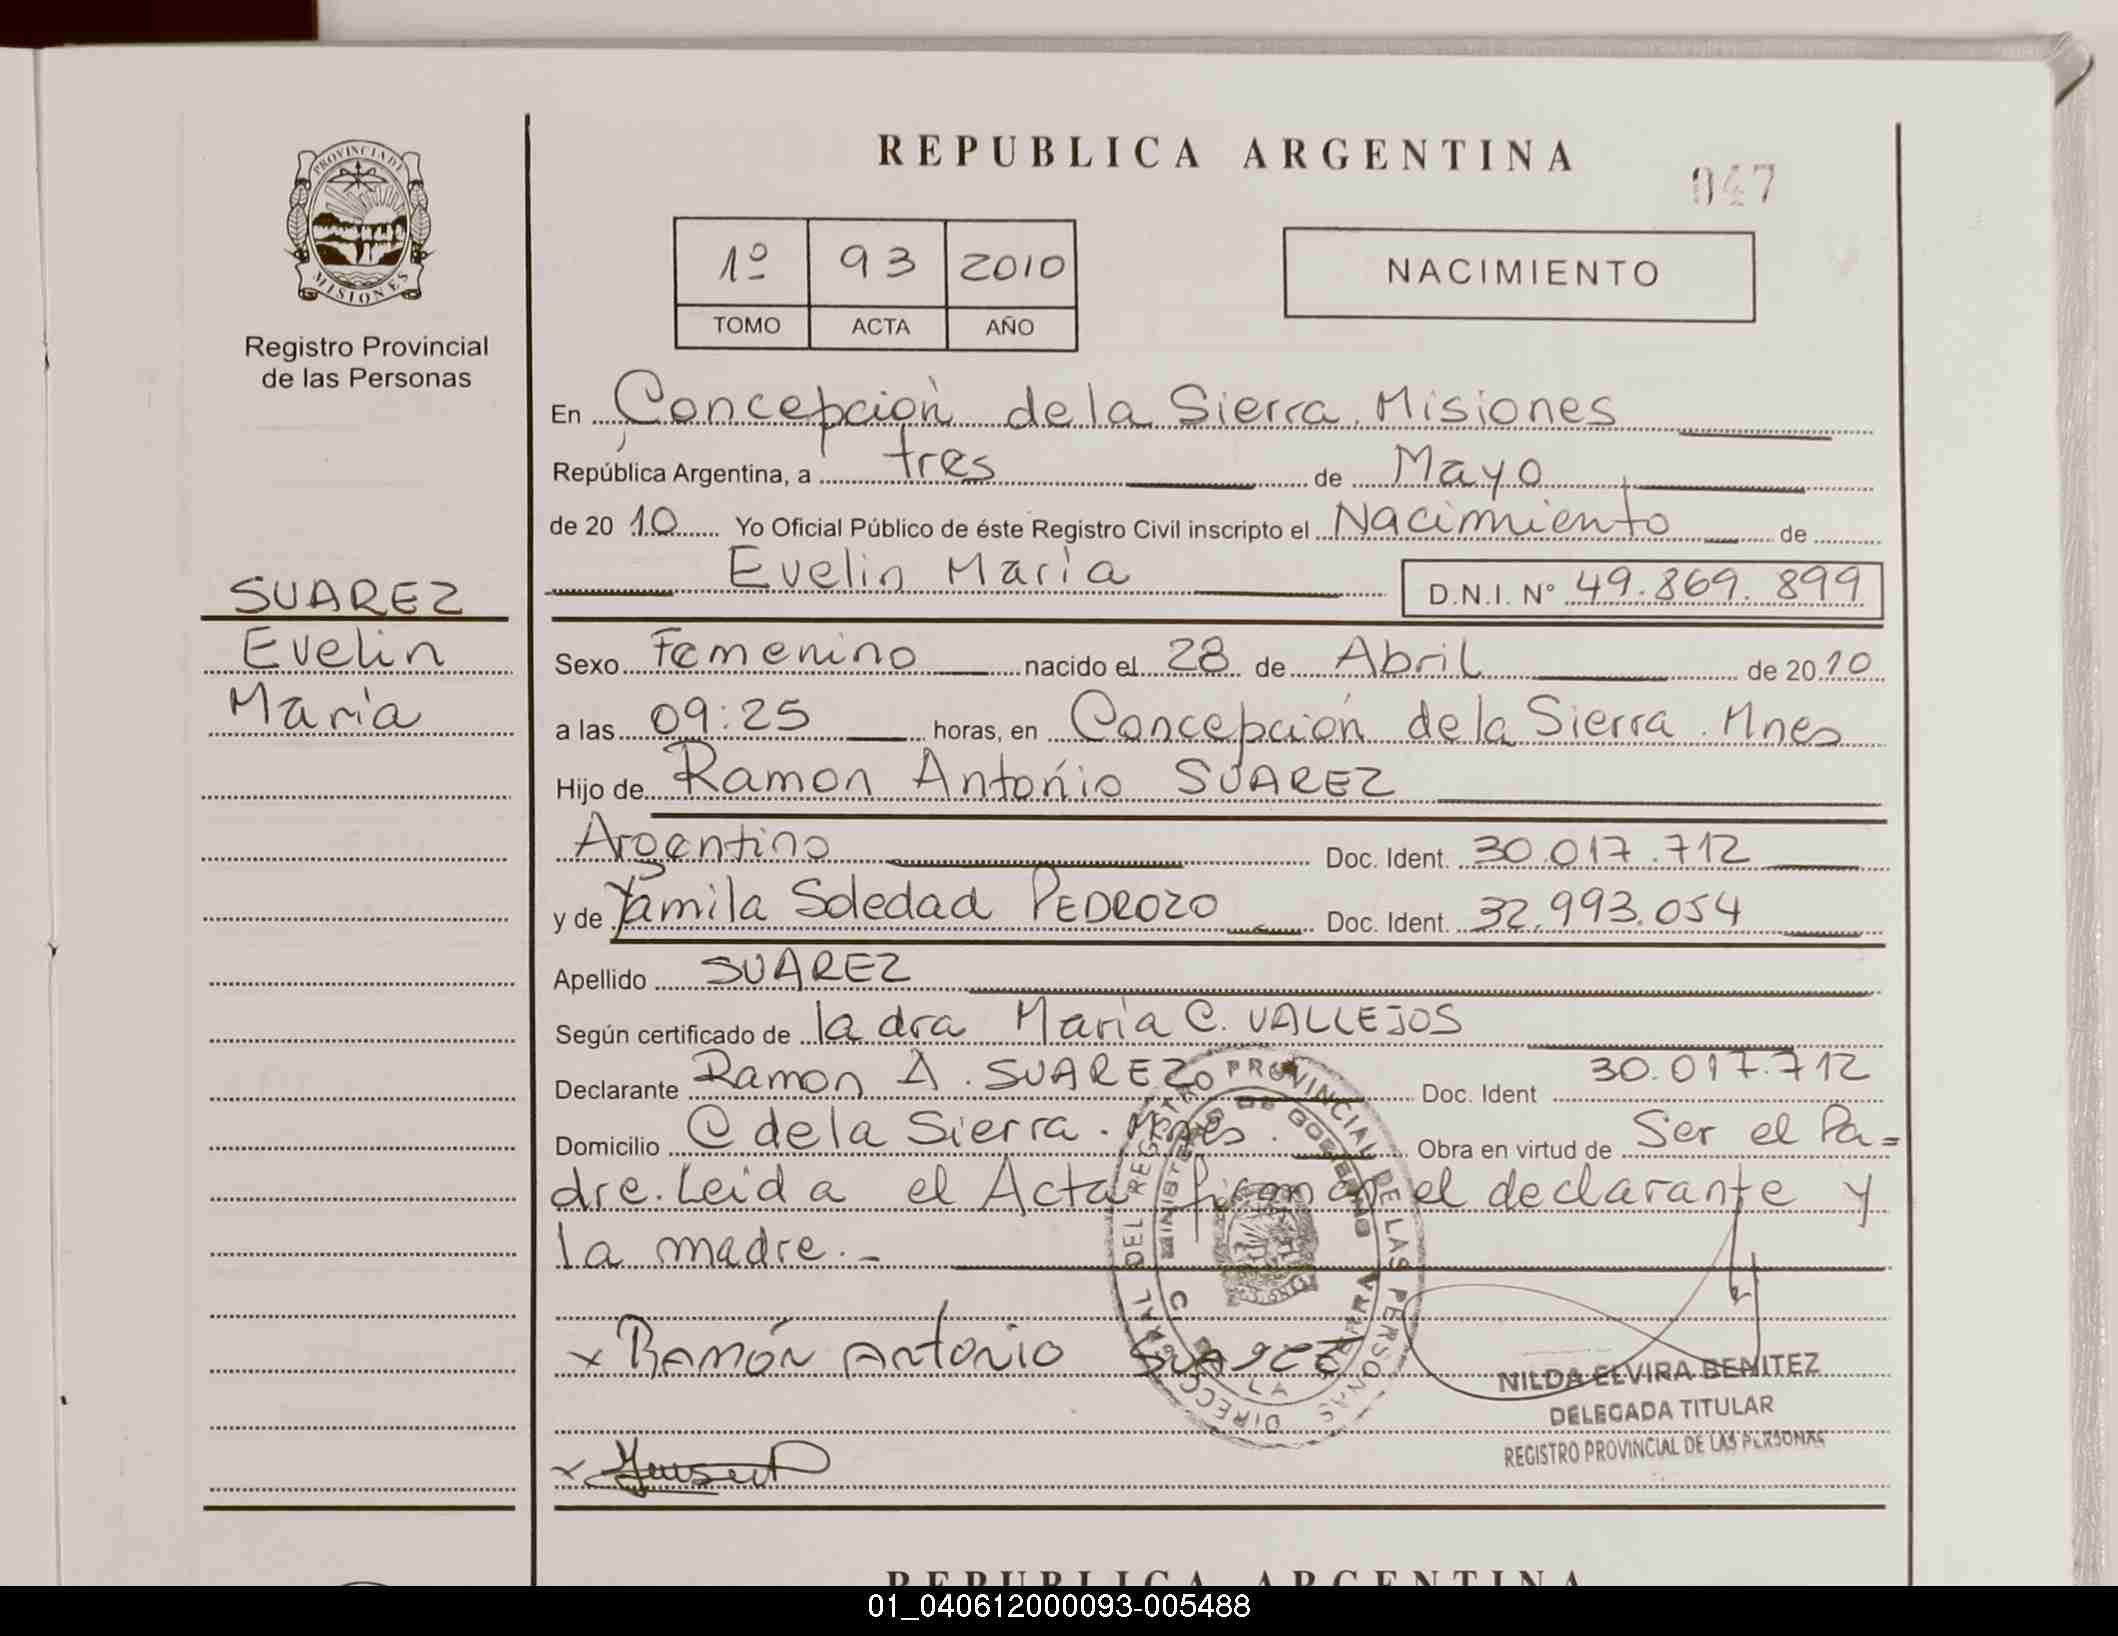 REPUBLICA ARGENTINA
047
PROVINCIA DE
MISIONES
Registro Provincial
de las Personas
1º 93 2010
TOMO ACTA AÑO
NACIMIENTO
En Concepción de la Sierra, Misiones
República Argentina, a tres de Mayo
de 20 10 Yo Oficial Público de éste Registro Civil inscripto el Nacimiento de
Evelin María D.N.I. Nº 49.869.899
SUAREZ
Evelin
María
Sexo Femenino nacido el 28 de Abril de 20 10
a las 09:25 horas, en Concepción de la Sierra. Mnes
Hijo de Ramon Antonio SUAREZ
Argentino Doc. Ident. 30.017.712
y de Yamila Soledad PEDROZO Doc. Ident. 32.993.054
Apellido SUAREZ
Según certificado de la dra María C. VALLEJOS
Declarante Ramon A. SUAREZ Doc. Ident 30.017.712
Domicilio C de la Sierra. Mnes. Obra en virtud de Ser el Pa=
dre. Leida el Acta firman el declarante y
la madre.-
x RAMÓN ANTONIO SUAREZ
DIRECC GRAL DEL REGISTRO PROVINCIAL DE LAS PERSONAS
MINISTERIO DE GOBIERNO
C DE LA SIERRA
NILDA ELVIRA BENITEZ
DELEGADA TITULAR
REGISTRO PROVINCIAL DE LAS PERSONAS
x
REPUBLICA ARGENTINA
01_040612000093-005488